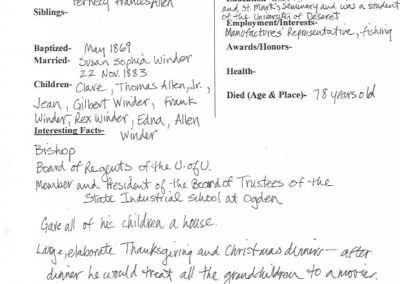 Frances Allen
Siblings-
Baptized- May 1869
Married- Susan Sophia Winder
22 Nov. 1883
Children- Clare, Thomas Allen, Jr.,
Jean, Gilbert Winder, Frank
Winder, Rex Winder, Edna, Allen
Winder
and St. Mark's Seminary and was a student
of the University of Deseret
Employment/Interests-
Manufactures' Representative, -fishing
Awards/Honors-
Health-
Died (Age & Place)- 78 years old
Interesting Facts-
Bishop
Board of Regents of the U. of U.
Member and President of the Board of Trustees of the
State Industrial School at Ogden
Gave all of his children a house.
Large, elaborate Thanksgiving and Christmas dinners — after
dinner he would treat all the grandchildren to a movie.